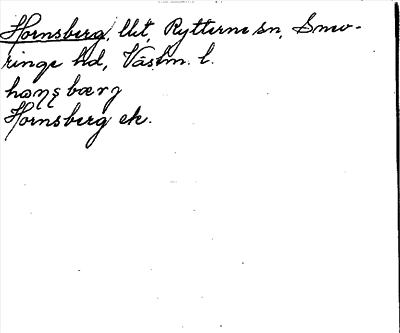 Hornsberg, llt, Rytterne sn, Snev-
ringe hd, Västm. l.
Hornsberg ek.